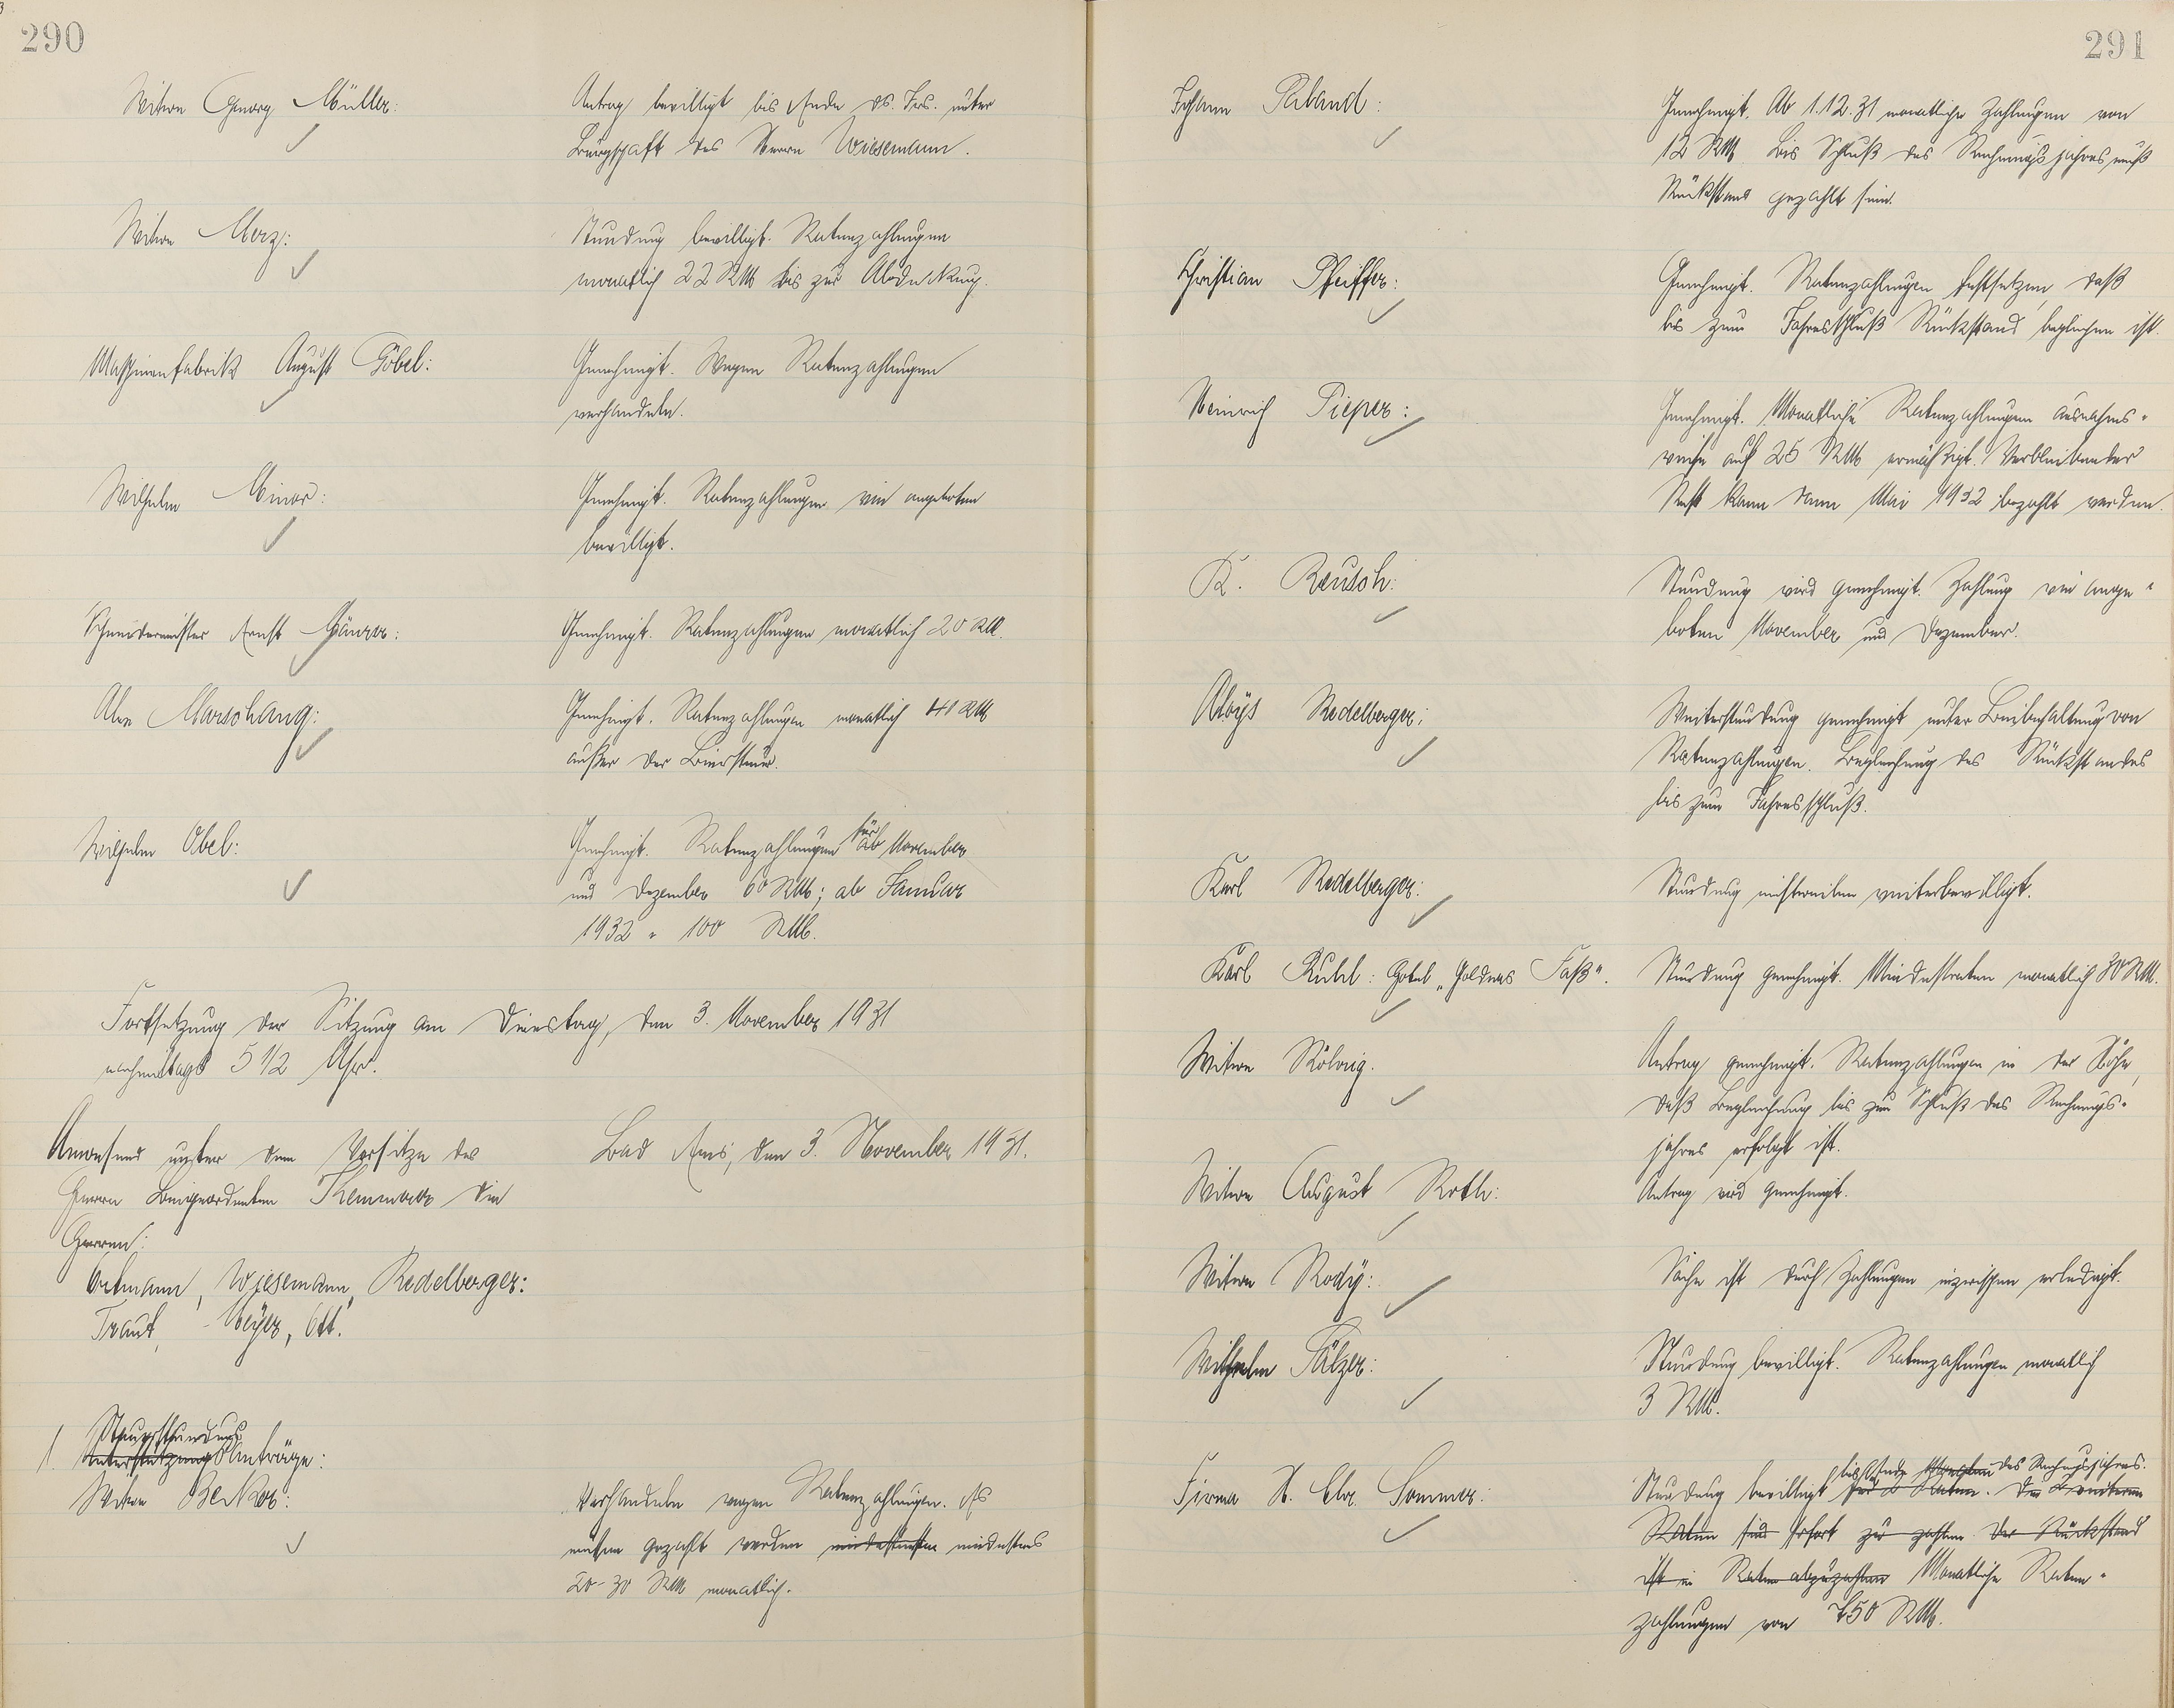 290
Witwe Georg Müller:
Antrag bewilligt bis Ende ds. Jrs. unter
Bürgschaft des Herrn Wiesemann.
Witwe Merz:
Stundung bewilligt. Ratenzahlungen
monatlich 22 RM bis zur Abdeckung.
Maschinenfabrik August Göbel:
Genehmigt. Wegen Ratenzahlungen
verhandeln.
Wilhelm Minor:
Genehmigt. Ratenzahlungen wie angeboten
bewilligt.
Schneidermeister Ernst
Genehmigt. Ratenzahlungen monatlich 20 RM.
Marschang:
Genehmigt. Ratenzahlungen monatlich RM
außer der Biersteuer.
Wilhelm Abel:
Genehmigt. Ratenzahlungen für ab November
und Dezember 60 RM; ab Januar
1932 " 100 RM.
Fortsetzung der Sitzung am Dienstag, den 3. November 1931
nachmittags 5 1/2 Uhr.
Anwesend unter dem Vorsitze des
Herrn Beigeordneten Kemmerer die
Herren:
Ortmann, Wiesemann, Redelberger:
Traut, Meyer, Ott.
Bad Ems, den 3. November 1931.
Steuerstundungs
1. Unterstützungs Anträge:
Witwe Becker:
Verhandeln wegen Ratenzahlungen. Es
müssen gezahlt werden mindestens
20-30 RM monatlich.
291
Johann Paband:
Genehmigt. Ab 1.12.31 monatliche Zahlungen von
12 RM. Bis Schluß des Rechnungsjahres muß
Rückstand gezahlt sein.
Christian Pfeiffer:
Genehmigt. Ratenzahlungen festsetzen, daß
bis zum Jahresschluß Rückstand beglichen ist.
Heinrich Pieper:
Genehmigt. Monatliche Ratenzahlungen ausnahms-
weise auf 25 RM ermäßigt. Verbleibender
Rest kann dann Mai 1932 bezahlt werden.
K. Reusch:
Stundung wird genehmigt. Zahlung wie ange-
boten November und Dezember.
Aloys Redelberger:
Weiterstundung genehmigt unter Beibehaltung von
Ratenzahlungen. Begleichung des Rückstandes
bis zum Jahresschluß.
Karl Redelberger:
Stundung einstweilen weiterbewilligt.
Karl Ruhl: Hotel „Goldnes Faß".
Stundung genehmigt. Mindestraten monatlich 30 RM.
Witwe Rölvig.
Antrag genehmigt. Ratenzahlungen in der Höhe,
daß Begleichung bis zum Schluß des Rechnungs-
jahres erfolgt ist.
Witwe August Roth:
Antrag wird genehmigt.
Witwe Rody:
Sache ist durch Zahlungen inzwischen erledigt.
Wilhelm Sälzer:
Stundung bewilligt. Ratenzahlungen monatlich
3 RM.
Firma H. Chr. Sommer:
bis Ende des Rechnungsjahres.
Stundung bewilligt für 2 Raten. Die 2 weiteren
Raten sind sofort zu zahlen. Der Rückstand
ist in Raten abzuzahlen Monatliche Raten-
zahlungen von 450 RM.